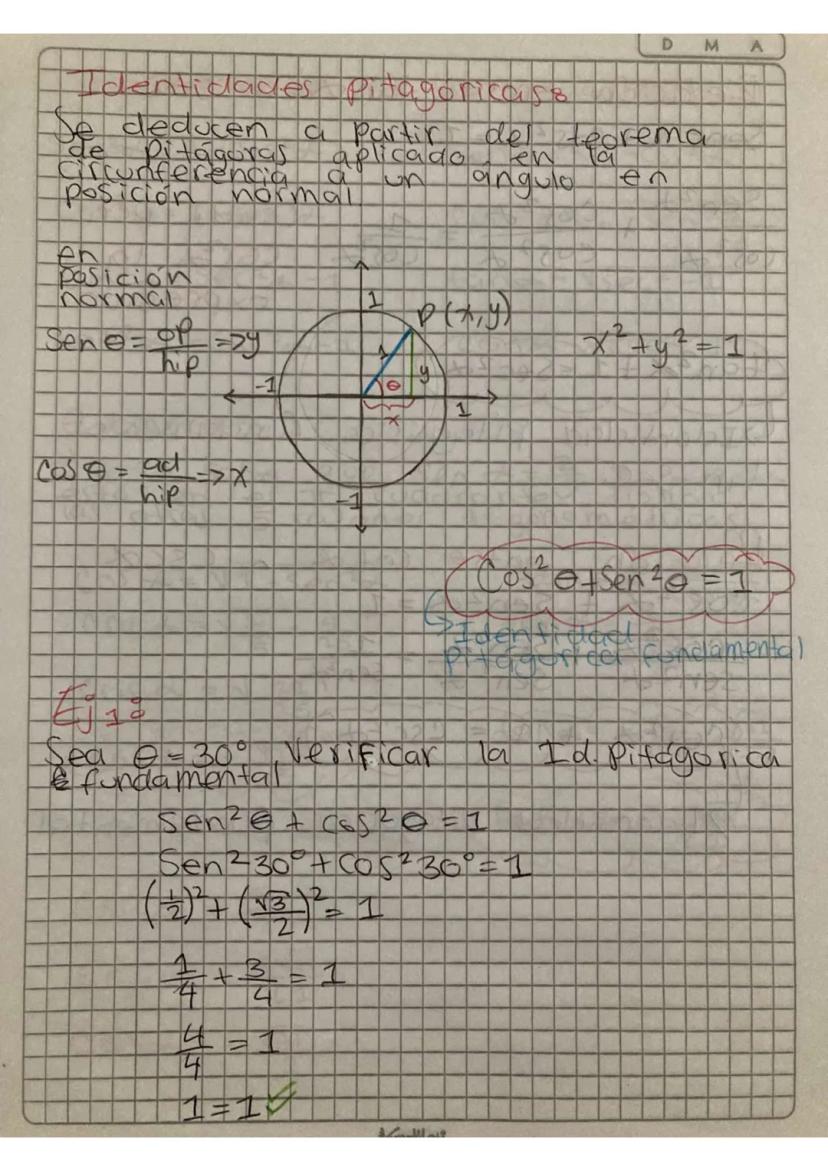 D M A
Identidades pitagóricas:
Se deducen a partir del teorema
de pitágoras aplicado en la
circunferencia a un ángulo en
posición normal
en
posición
normal
1
P(x,y)
Sen θ = op/hip => y
x² + y² = 1
1
y
-1
θ
x
1
Cos θ = ad/hip => x
-1
Cos² θ + Sen² θ = 1
↳ Identidad
pitágorica fundamental
Ej 1:
Sea θ = 30°, verificar la Id. Pitágorica
fundamental
Sen² θ + cos² θ = 1
Sen² 30° + cos² 30° = 1
(1/2)² + (√3/2)² = 1
1/4 + 3/4 = 1
4/4 = 1
1 = 1 ✓